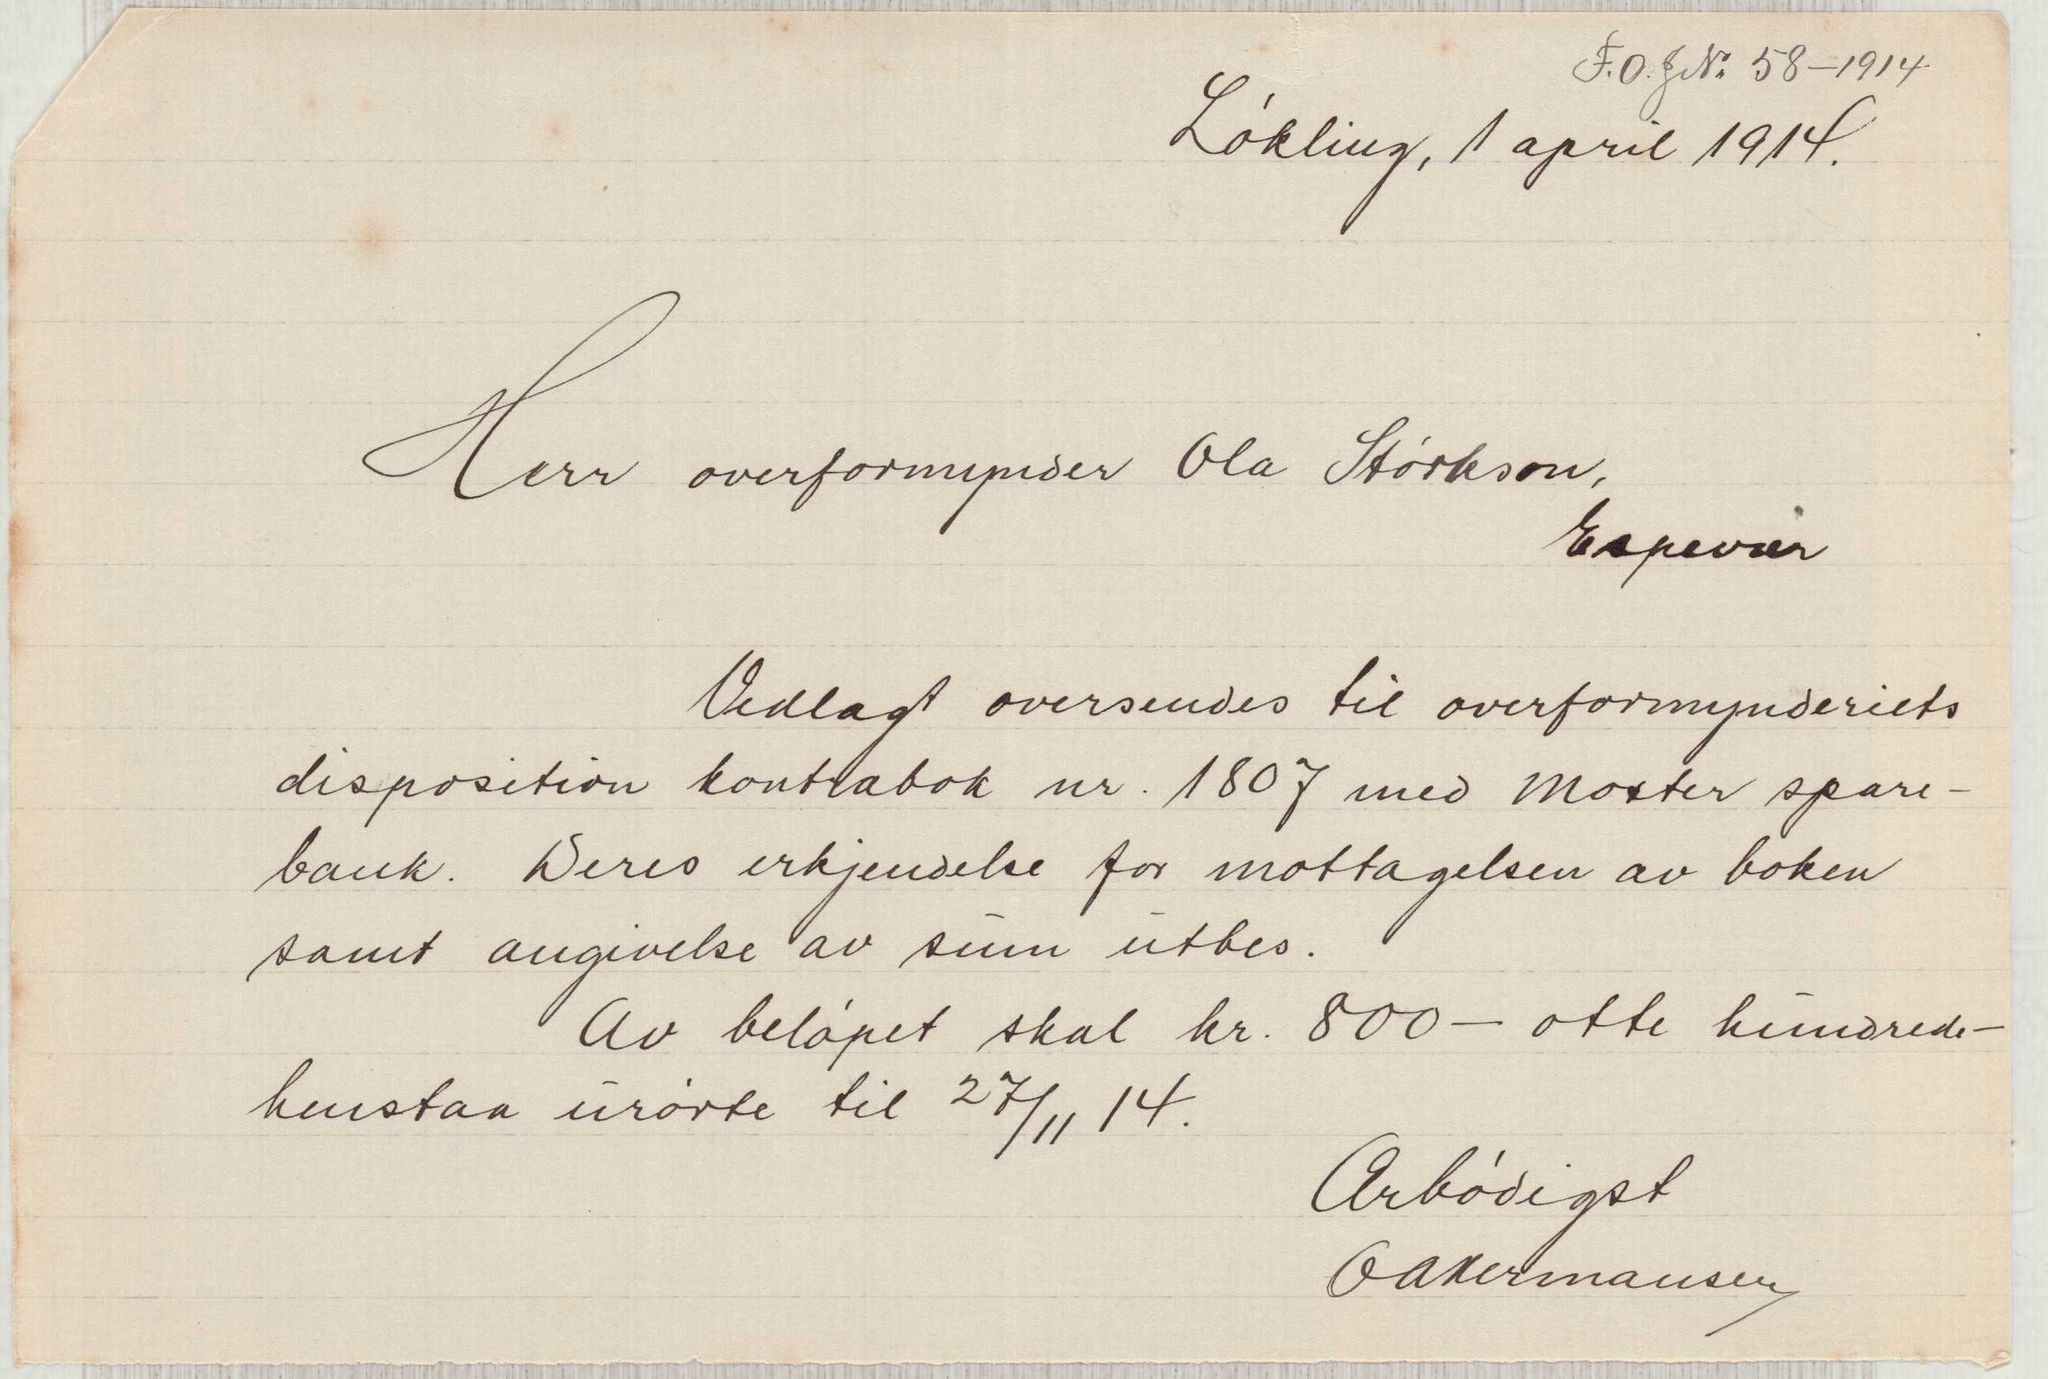 F.O.J.Nr. 58–1914
Lókling, 1 april 1914.
Herr overformynder Ola Stórkson,
Espevær
Vedlagt oversendes til overformynderiets
disposition kontrabok nr. 1807 med Moster spare-
bank. Deres erkjendelse for mottagelsen av boken
samt angivelse av sum utbes.
Av belópet skal kr. 800 – otte hundrede –
henstaa urórte til 27/11 14.
Ærbódigst
O Akermansen